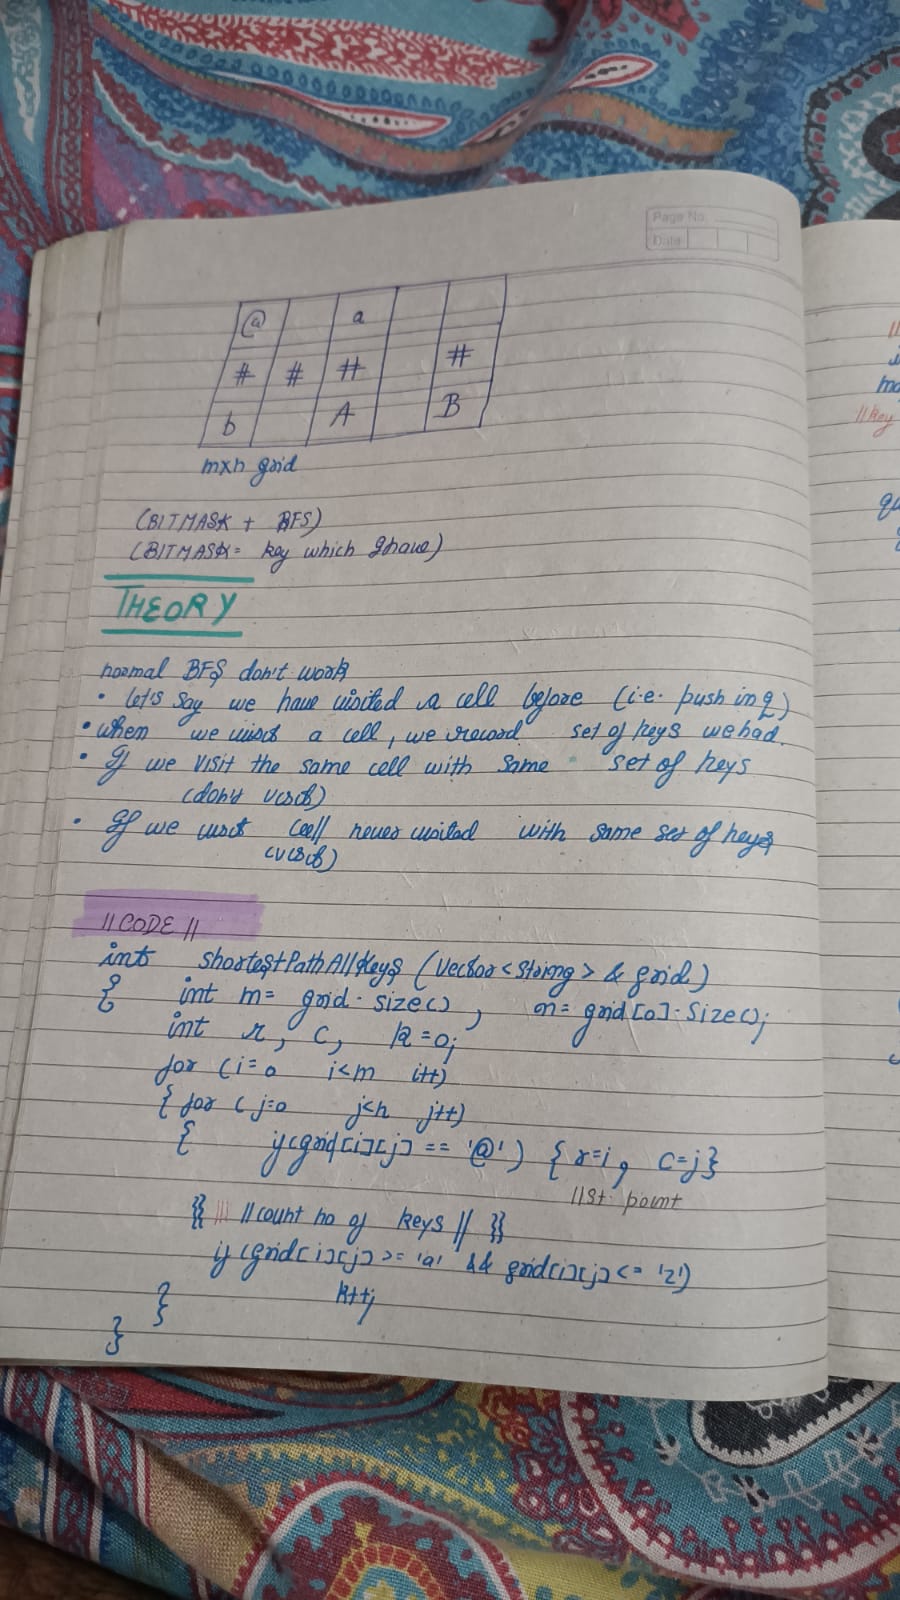 Page No.
Date
@ a
# # # #
b A B
mxn grid
(BITMASK + BFS)
(BITMASK = key which I have)
THEORY
normal BFS don't work
• let's say we have visited a cell before (i.e. push in q)
• when we visit a cell, we record set of keys we had.
• If we visit the same cell with same set of keys
(don't visit)
• If we visit cell never visited with same set of keys
(visit)
// CODE //
int shortestPathAllKeys (vector<string> & grid)
{ int m= grid.size() , n= grid[0].size();
int r, c, k=0;
for (i=0 i<m i++)
{ for (j=0 j<n j++)
{ if(grid[i][j] == '@') { r=i, c=j}
//st. point
{{ // count no of keys // }}
if (grid[i][j] >= 'a' && grid[i][j] <= 'z')
k++;
}
}
//
//key